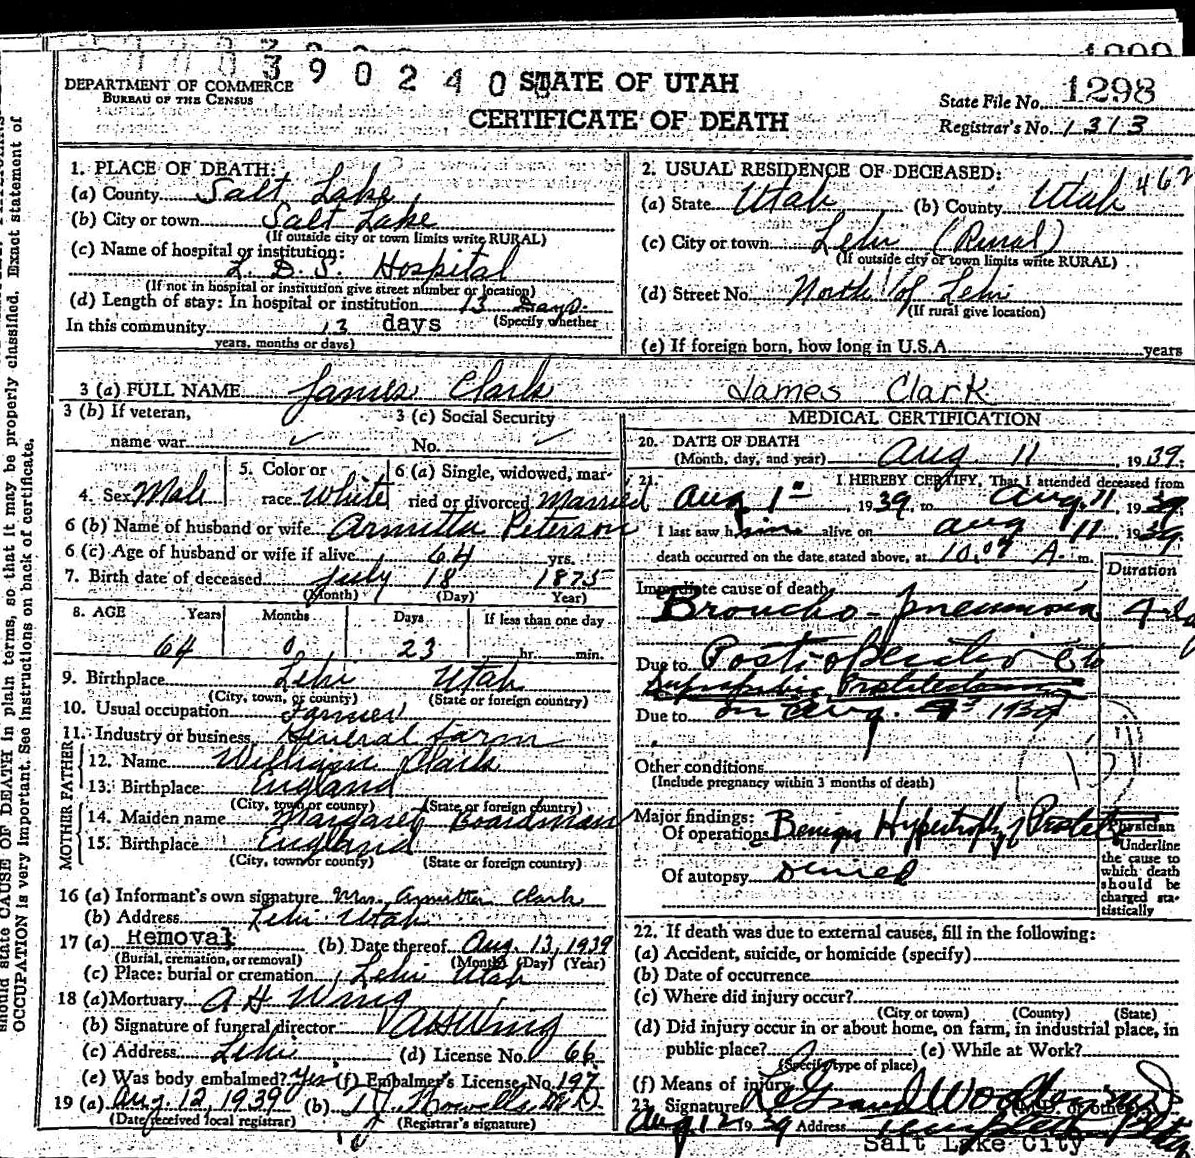 1299
390240
STATE OF UTAH
CERTIFICATE OF DEATH
DEPARTMENT OF COMMERCE
BUREAU OF THE CENSUS
State File No. 1298
Registrar's No. 1313
should state CAUSE OF DEATH in plain terms, so that it may be properly classified. Exact statement of
OCCUPATION is very important. See instructions on back of certificate.
1. PLACE OF DEATH:
(a) County Salt Lake
(b) City or town Salt Lake
(If outside city or town limits write RURAL)
(c) Name of hospital or institution:
L. D. S. Hospital
(If not in hospital or institution give street number or location)
(d) Length of stay: In hospital or institution 13 Days
(Specify whether
In this community 13 days
years, months or days)
2. USUAL RESIDENCE OF DECEASED:
(a) State Utah (b) County Utah 462
(c) City or town Lehi (Rural)
(If outside city or town limits write RURAL)
(d) Street No. North of Lehi
(If rural give location)
(e) If foreign born, how long in U.S.A. years
3 (a) FULL NAME James Clark James Clark
3 (b) If veteran,
name war
3 (c) Social Security
No.
4. Sex Male
5. Color or
race White
6 (a) Single, widowed, mar-
ried or divorced Married
6 (b) Name of husband or wife Armitta Peterson
6 (c) Age of husband or wife if alive 64 yrs.
7. Birth date of deceased July 18 1875
(Month) (Day) Year)
8. AGE Years Months Days If less than one day
64 0 23 hr. min.
9. Birthplace Lehi Utah
(City, town, or county) (State or foreign country)
10. Usual occupation Farmer
11. Industry or business General farm
FATHER
12. Name William Clark
13. Birthplace England
(City, town or county) (State or foreign country)
MOTHER
14. Maiden name Margaret Boardman
15. Birthplace England
(City, town or county) (State or foreign country)
16 (a) Informant's own signature Mrs. Armitta Clark
(b) Address Lehi Utah
17 (a) Removal (b) Date thereof Aug. 13, 1939
(Burial, cremation, or removal) (Month) (Day) (Year)
(c) Place: burial or cremation Lehi Utah
18 (a) Mortuary A H Wing
(b) Signature of funeral director A H Wing
(c) Address Lehi (d) License No. 66
(e) Was body embalmed? Yes (f) Embalmer's License No. 197
19 (a) Aug. 12, 1939 (b) M.D.
(Date received local registrar) (Registrar's signature)
MEDICAL CERTIFICATION
20. DATE OF DEATH
(Month, day, and year) Aug 11, 1939.
21. I HEREBY CERTIFY, That I attended deceased from
Aug 1, 1939 to Aug. 11, 1939.
I last saw him alive on Aug 11 1939.
death occurred on the date stated above, at 10:09 A. m.
Duration
Immediate cause of death
Broncho-pneumonia 4 da
Due to Post-operative to
Suprapubic Prostatectomy
Due to on Aug. 1939
Other conditions
(Include pregnancy within 3 months of death)
Major findings:
Of operations Benign Hypertrophy of Prostate
Of autopsy Denied
Physician
Underline
the cause to
which death
should be
charged sta-
tistically
22. If death was due to external causes, fill in the following:
(a) Accident, suicide, or homicide (specify)
(b) Date of occurrence
(c) Where did injury occur?
(City or town) (County) (State)
(d) Did injury occur in or about home, on farm, in industrial place, in
public place? (e) While at Work?
(Specify type of place)
(f) Means of injury
23. Signature (M.D. or other)
Aug 12 1939 Address
Salt Lake City